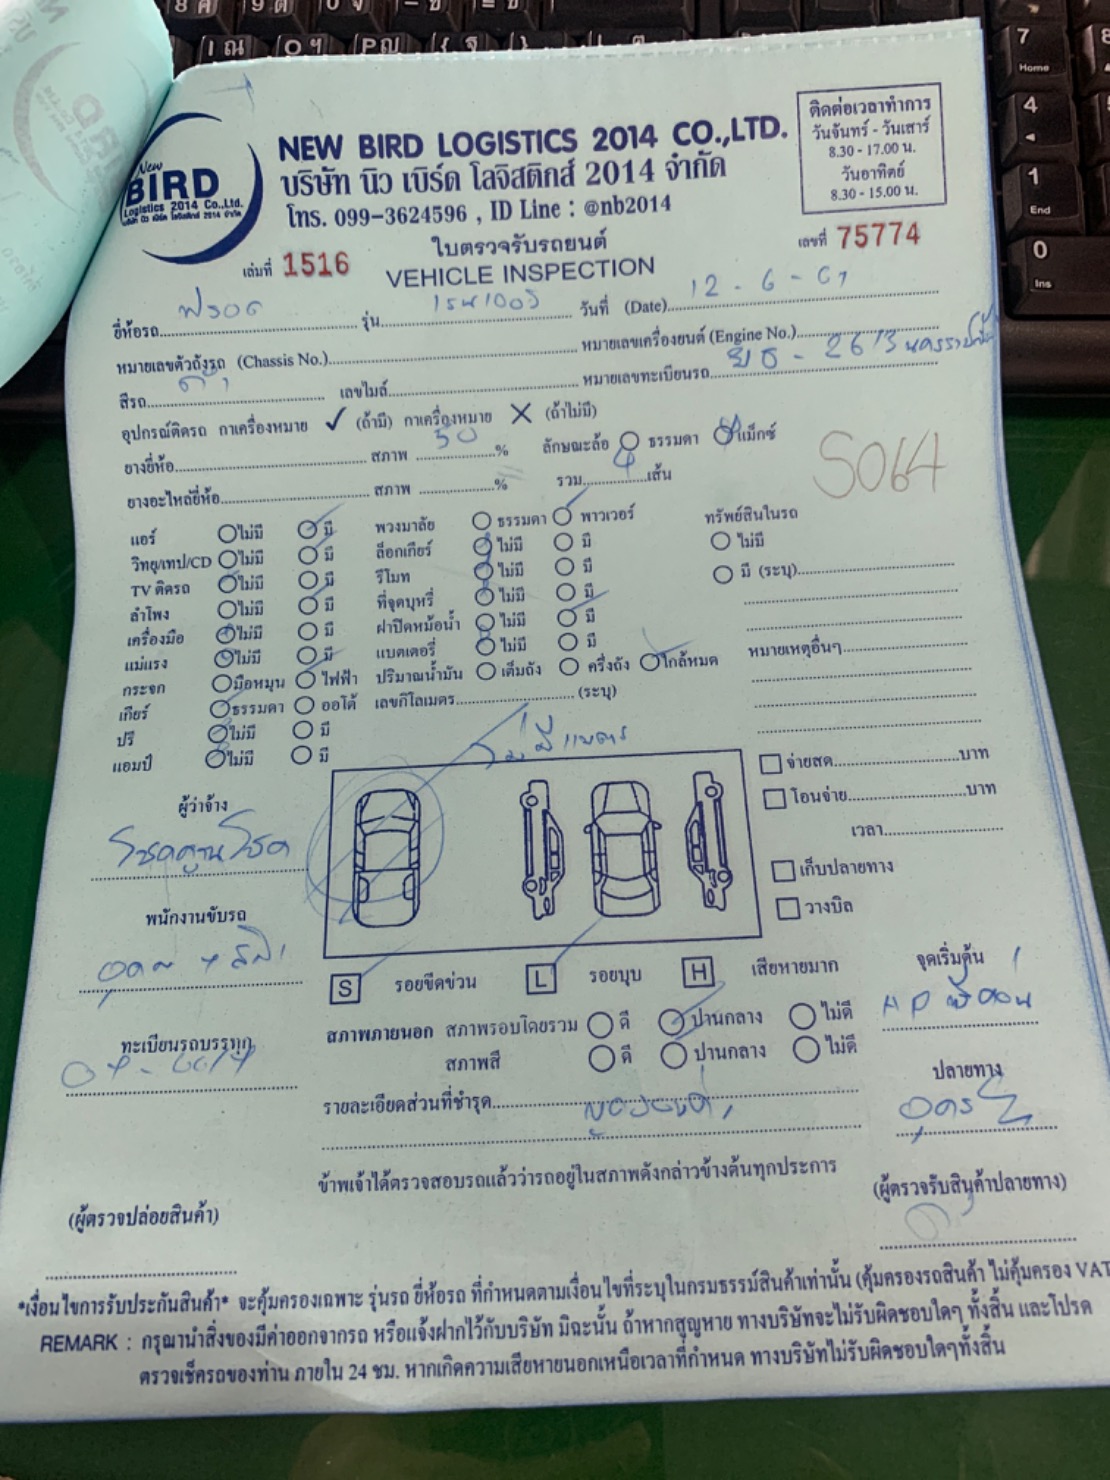 New
BIRD
Logistics 2014 Co.,Ltd.
บริษัท นิว เบิร์ด โลจิสติกส์ 2014 จำกัด
NEW BIRD LOGISTICS 2014 CO.,LTD.
บริษัท นิว เบิร์ด โลจิสติกส์ 2014 จำกัด
โทร. 099-3624596 , ID Line : @nb2014
ติดต่อเวลาทำการ
วันจันทร์ - วันเสาร์
8.30 - 17.00 น.
วันอาทิตย์
8.30 - 15.00 น.
ใบตรวจรับรถยนต์
เล่มที่ 1516 VEHICLE INSPECTION เลขที่ 75774
ยี่ห้อรถ ฟรอด รุ่น วันที่ (Date) 12 - 6 - 67
หมายเลขตัวถังรถ (Chassis No.) หมายเลขเครื่องยนต์ (Engine No.)
สีรถ ดำ เลขไมล์ หมายเลขทะเบียนรถ - 2613
อุปกรณ์ติดรถ กาเครื่องหมาย ✓ (ถ้ามี) กาเครื่องหมาย ✕ (ถ้าไม่มี)
ยางยี่ห้อ สภาพ 50 % ลักษณะล้อ ธรรมดา แม็กซ์
ยางอะไหล่ยี่ห้อ สภาพ % รวม 4 เส้น
5064
แอร์ ไม่มี มี พวงมาลัย ธรรมดา พาวเวอร์ ทรัพย์สินในรถ
วิทยุ/เทป/CD ไม่มี มี ล็อกเกียร์ ไม่มี มี ไม่มี
TV ติดรถ ไม่มี มี รีโมท ไม่มี มี มี (ระบุ)
ลำโพง ไม่มี มี ที่จุดบุหรี่ ไม่มี มี
เครื่องมือ ไม่มี มี ฝาปิดหม้อน้ำ ไม่มี มี
แม่แรง ไม่มี มี แบตเตอรี่ ไม่มี มี หมายเหตุอื่นๆ
กระจก มือหมุน ไฟฟ้า ปริมาณน้ำมัน เต็มถัง ครึ่งถัง ใกล้หมด
เกียร์ ธรรมดา ออโต้ เลขกิโลเมตร (ระบุ)
ปรี ไม่มี มี
แอมป์ ไม่มี มี
จ่ายสด บาท
โอนจ่าย บาท
เวลา
เก็บปลายทาง
วางบิล
ผู้ว่าจ้าง
พนักงานขับรถ
ทะเบียนรถบรรทุก
S รอยขีดข่วน L รอยบุบ H เสียหายมาก
จุดเริ่มต้น
สภาพภายนอก สภาพรอบโดยรวม ดี ปานกลาง ไม่ดี
สภาพสี ดี ปานกลาง ไม่ดี
ปลายทาง
อุดร
รายละเอียดส่วนที่ชำรุด
ข้าพเจ้าได้ตรวจสอบรถแล้วว่ารถอยู่ในสภาพดังกล่าวข้างต้นทุกประการ
(ผู้ตรวจปล่อยสินค้า) (ผู้ตรวจรับสินค้าปลายทาง)
*เงื่อนไขการรับประกันสินค้า* จะคุ้มครองเฉพาะ รุ่นรถ ยี่ห้อรถ ที่กำหนดตามเงื่อนไขที่ระบุในกรมธรรม์สินค้าเท่านั้น (คุ้มครองรถสินค้า ไม่คุ้มครอง VAT
REMARK : กรุณานำสิ่งของมีค่าออกจากรถ หรือแจ้งฝากไว้กับบริษัท มิฉะนั้น ถ้าหากสูญหาย ทางบริษัทจะไม่รับผิดชอบใดๆ ทั้งสิ้น และโปรด
ตรวจเช็ครถของท่าน ภายใน 24 ชม. หากเกิดความเสียหายนอกเหนือเวลาที่กำหนด ทางบริษัทไม่รับผิดชอบใดๆทั้งสิ้น
7
Home
4
1
End
0
Ins